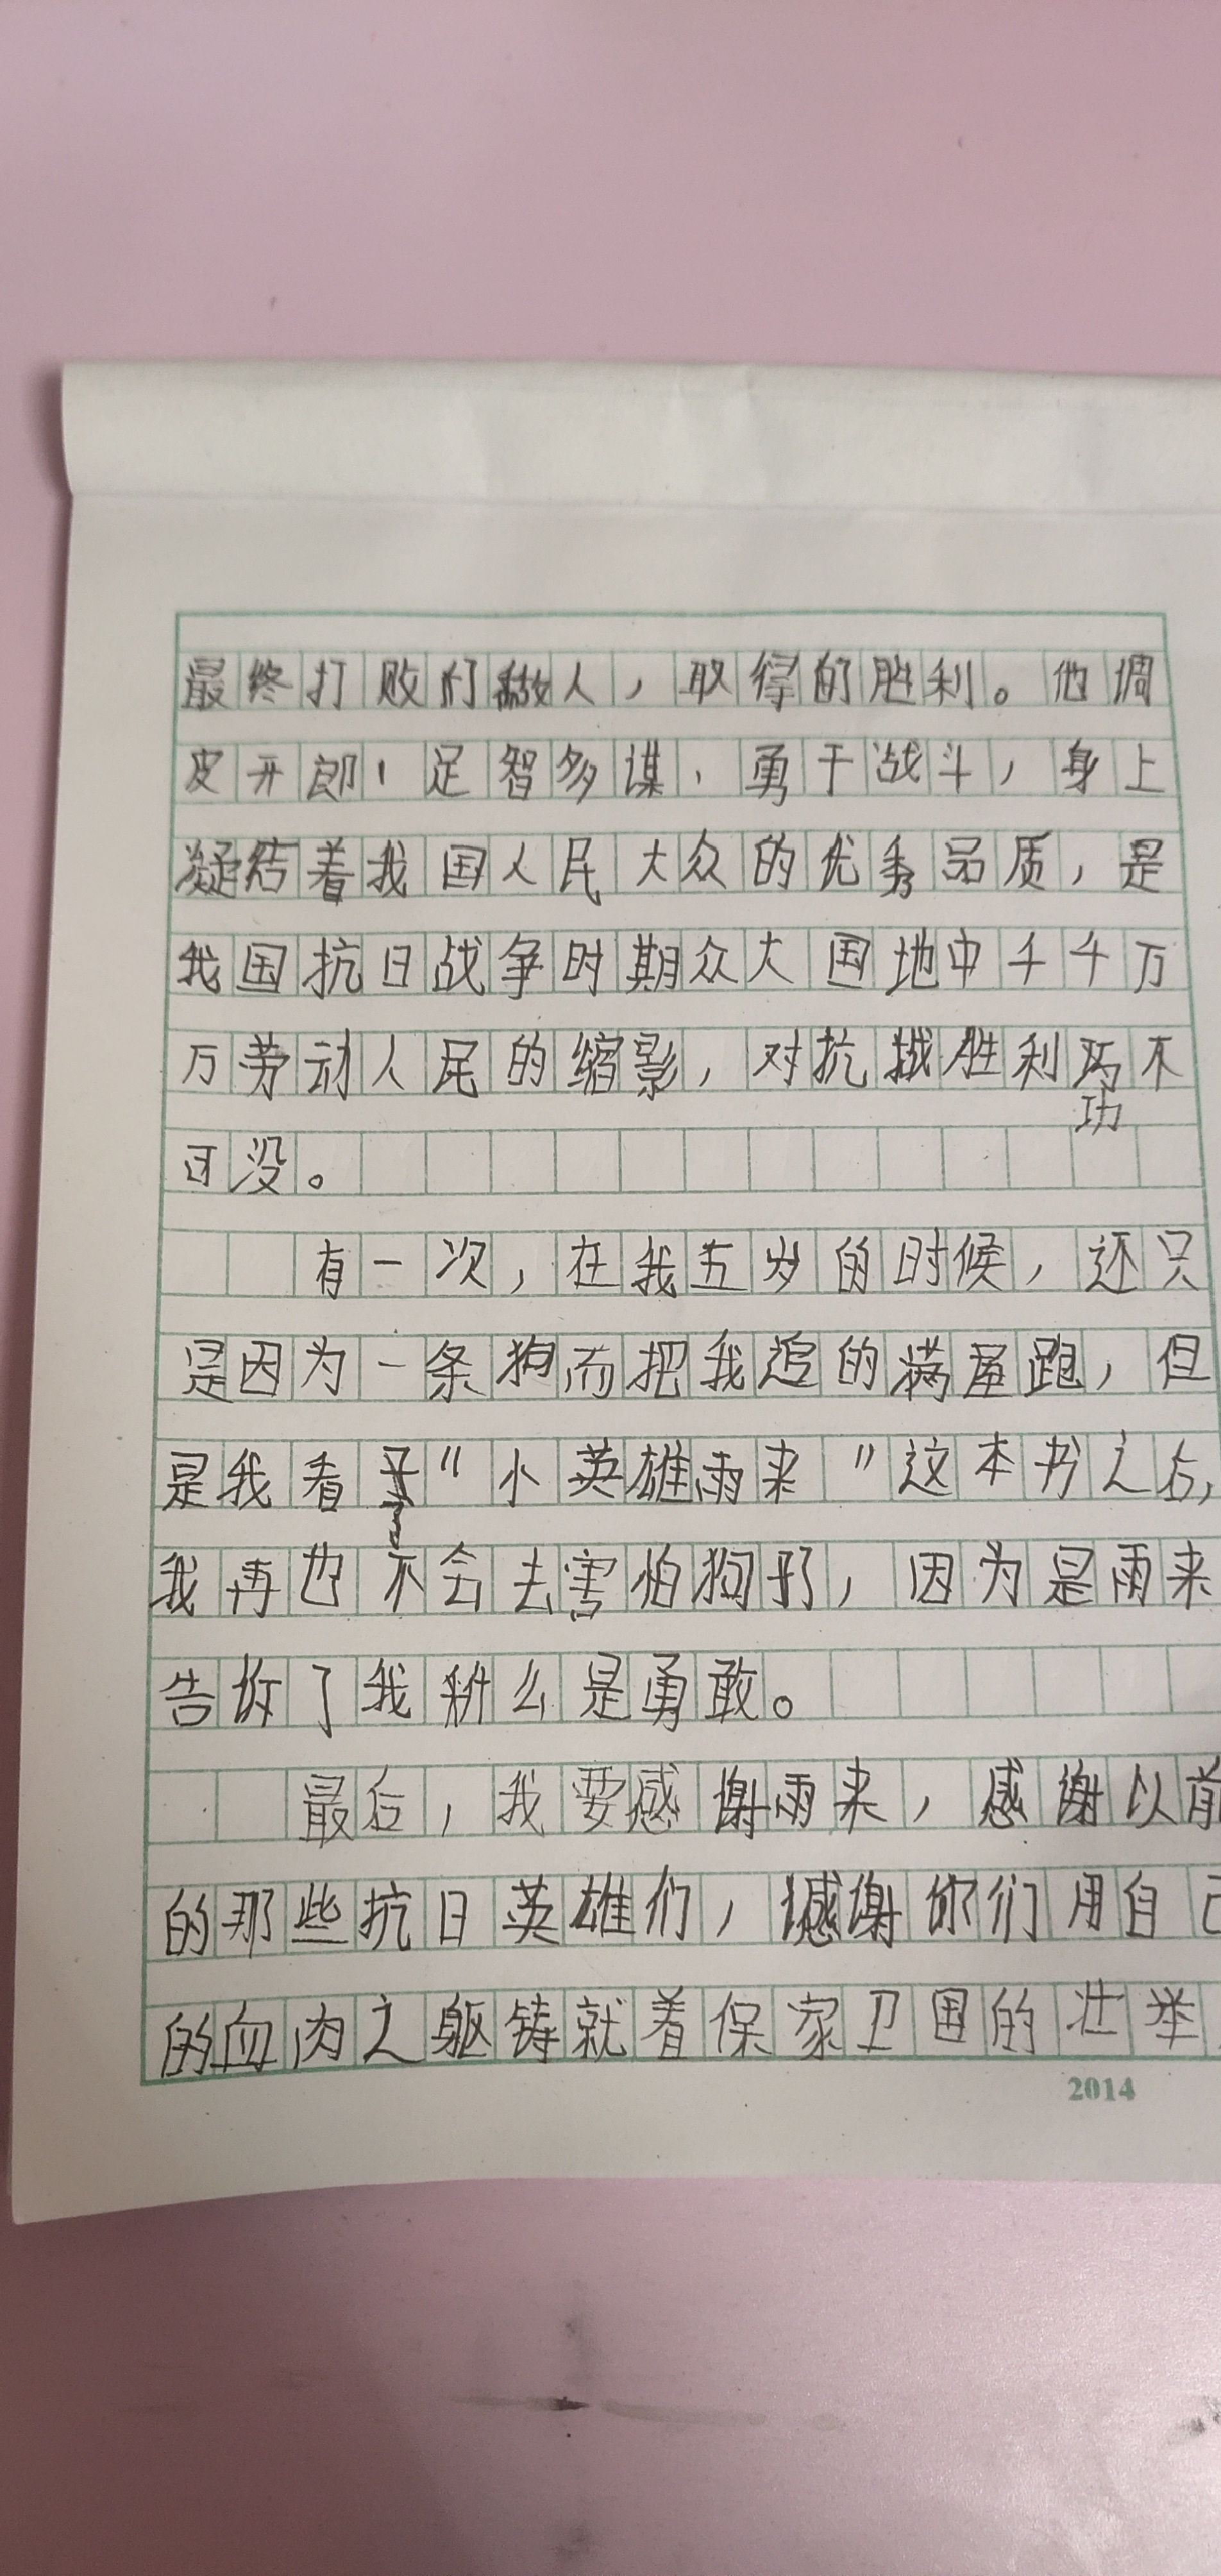 最终打败的敌人，取得的胜利。他调
皮开郎，足智多谋，勇于战斗，身上
凝结着我国人民大众的优秀品质，是
我国抗日战争时期众大国地中千千万
万劳动人民的缩影，对抗战胜利功不
可没。
有一次，在我五岁的时候，还只
是因为一条狗而把我追的满屋跑，但
是我看了“小英雄雨来”这本书之后，
我再也不会去害怕狗了，因为是雨来
告诉了我什么是勇敢。
最后，我要感谢雨来，感谢以前
的那些抗日英雄们，感谢你们用自己
的血肉之躯铸就着保家卫国的壮举
2014